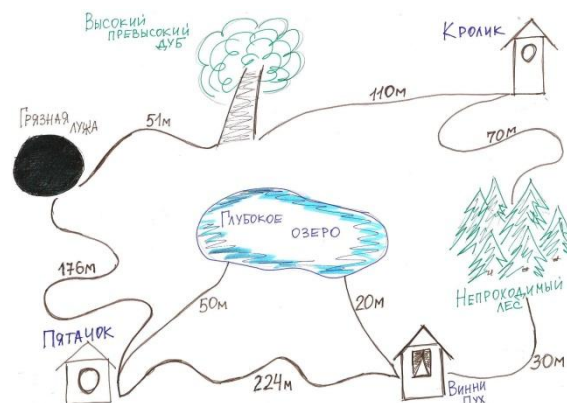 Высокий
превысокий
дуб
Кролик
Грязная
лужа
51м
110м
70м
Глубокое
озеро
176м
50м
20м
Непроходимый
лес
Пятачок
224м
30м
Винни
пух